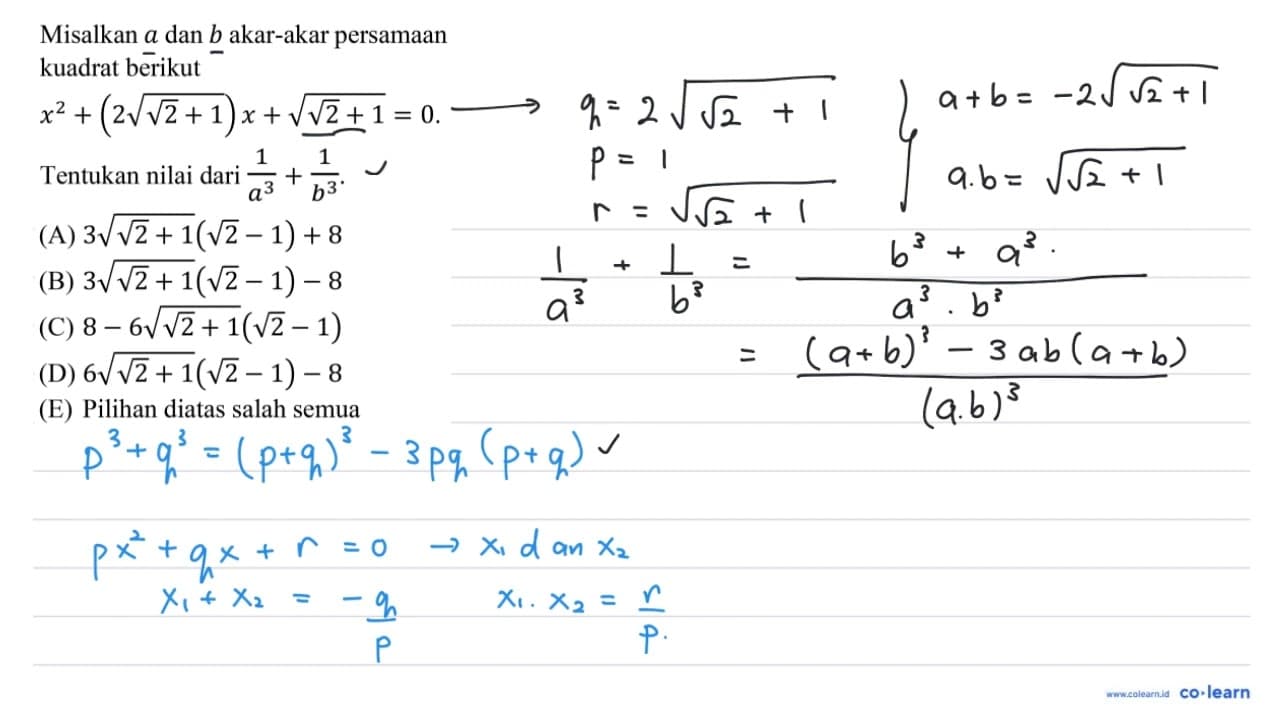 Misalkan a dan b akar-akar persamaan
kuadrat berikut
x² + (2√(√2 + 1))x + √(√2 + 1) = 0. ⟶ q = 2√(√2 + 1)
p = 1
r = √(√2 + 1)
a + b = -2√(√2 + 1)
a.b = √(√2 + 1)
Tentukan nilai dari 1/a³ + 1/b³. ✓
(A) 3√(√2 + 1)(√2 − 1) + 8
(B) 3√(√2 + 1)(√2 − 1) − 8
(C) 8 − 6√(√2 + 1)(√2 − 1)
(D) 6√(√2 + 1)(√2 − 1) − 8
(E) Pilihan diatas salah semua
1/a³ + 1/b³ = (b³ + a³.)/(a³ . b³)
= ((a+b)³ − 3ab(a+b))/(a.b)³
p³ + q³ = (p+q)³ − 3pq(p+q) ✓
px² + qx + r = 0 → x₁ dan x₂
x₁ + x₂ = −q/p x₁ . x₂ = r/p.
www.colearn.id co·learn